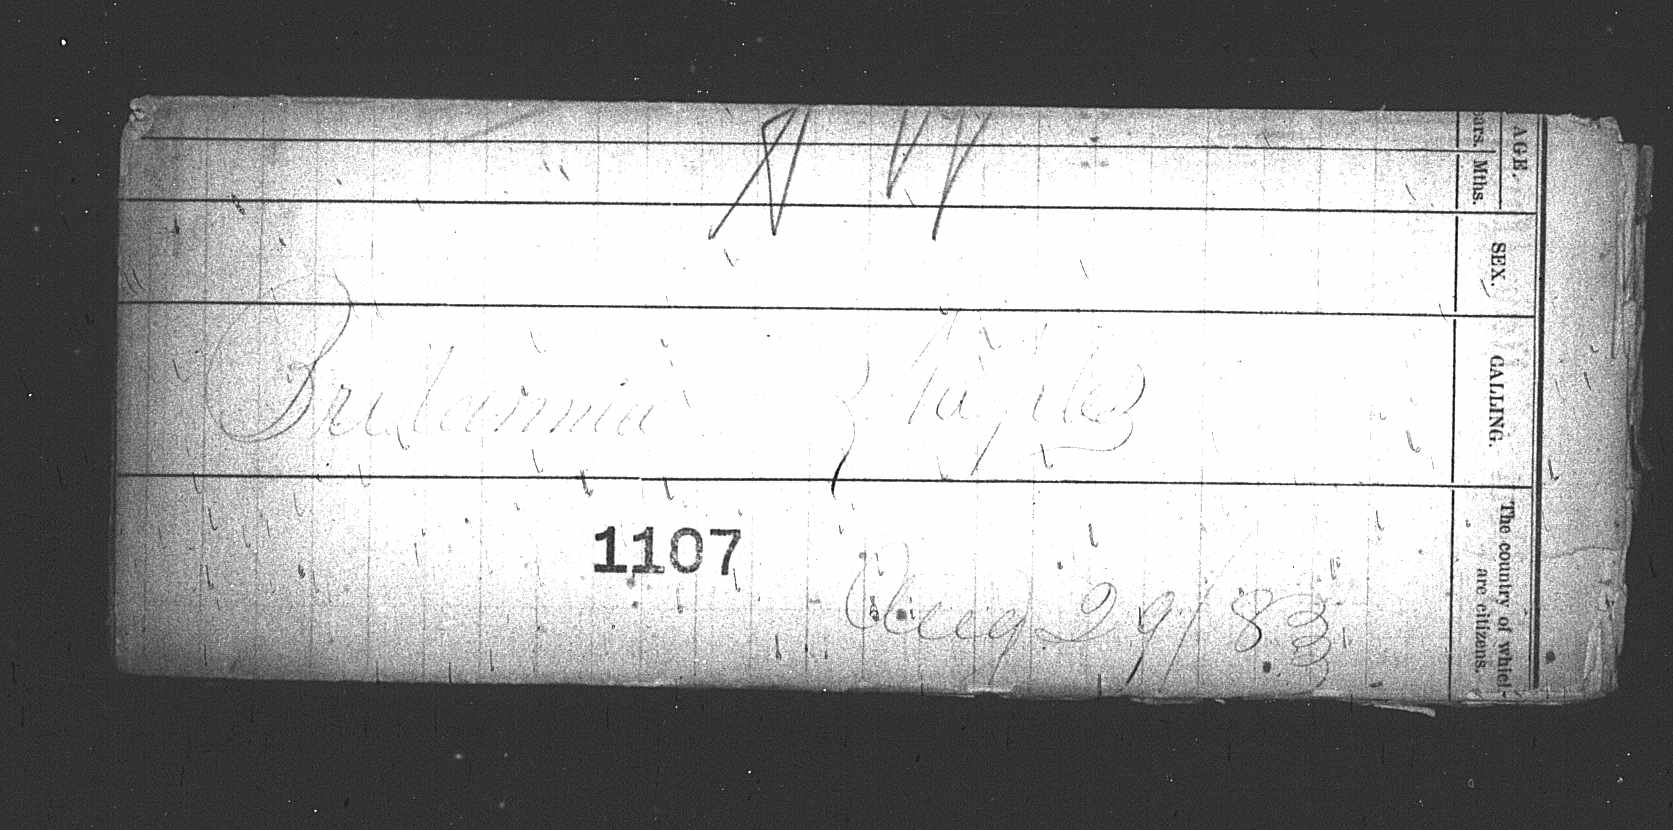 Britannia
1107
Aug 29/83
AGE.
ars. Mths.
SEX.
CALLING.
The country of which
are citizens.